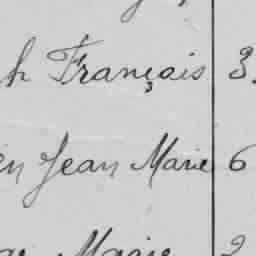 h François 3.
en Jean Marie 6
Marie 2